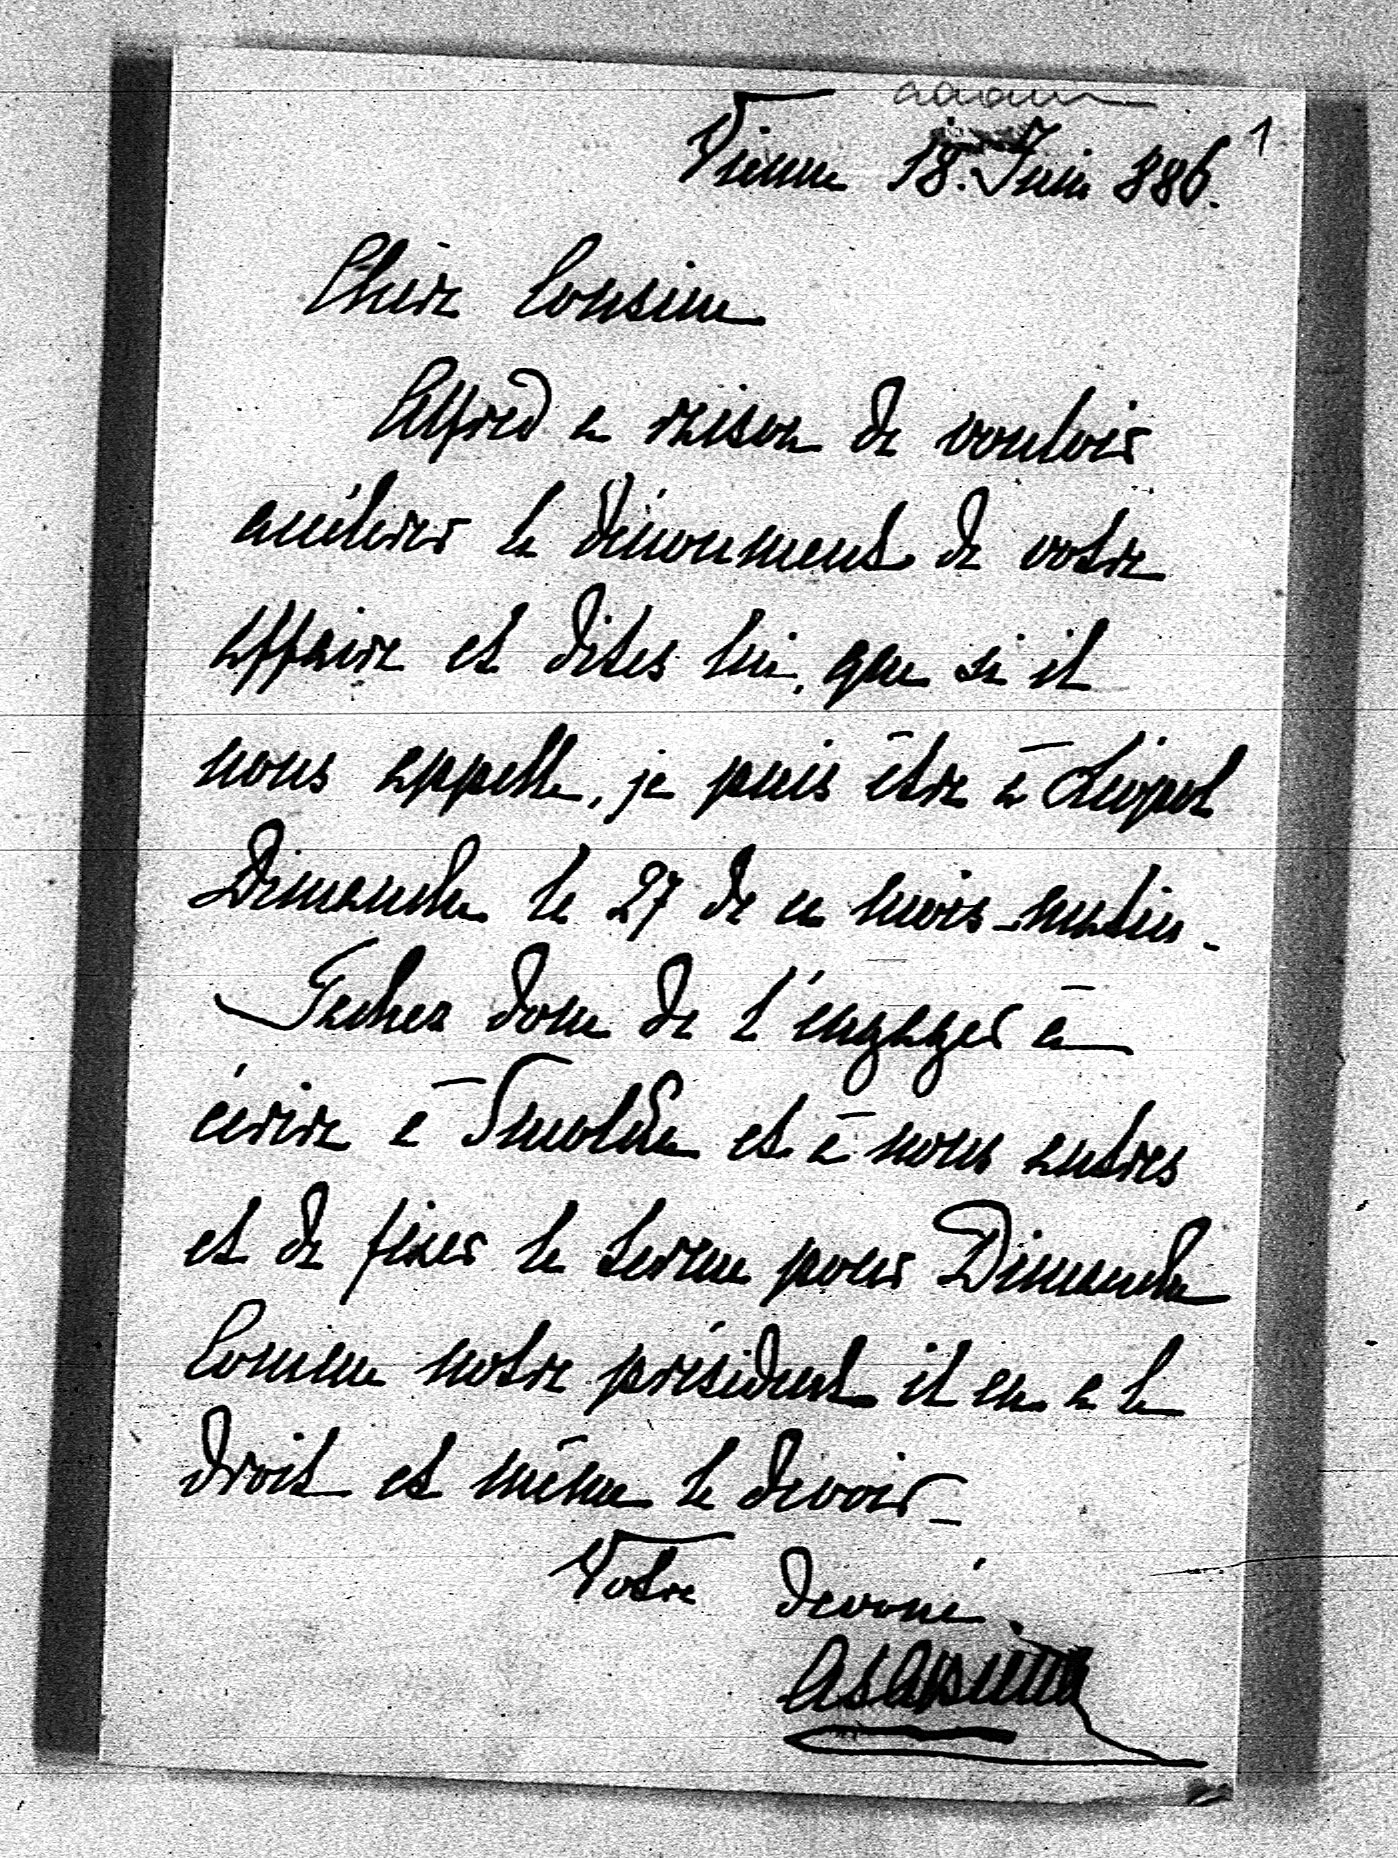 1
Vienne 18. Juin 886.
Cher Cousin
Alfred a raison de vouloir
accélérer le dénoument de votre
affaire et dites lui, que si il
nous appelle, je puis être à Léopol
Dimanche le 27 de ce mois-matin.
Tachez donc de l'engager à
écrire à Smolka et à nous autres
et de fixer le terme pour Dimanche
Comme notre président il en a le
droit et même le devoir_
Votre devoué.